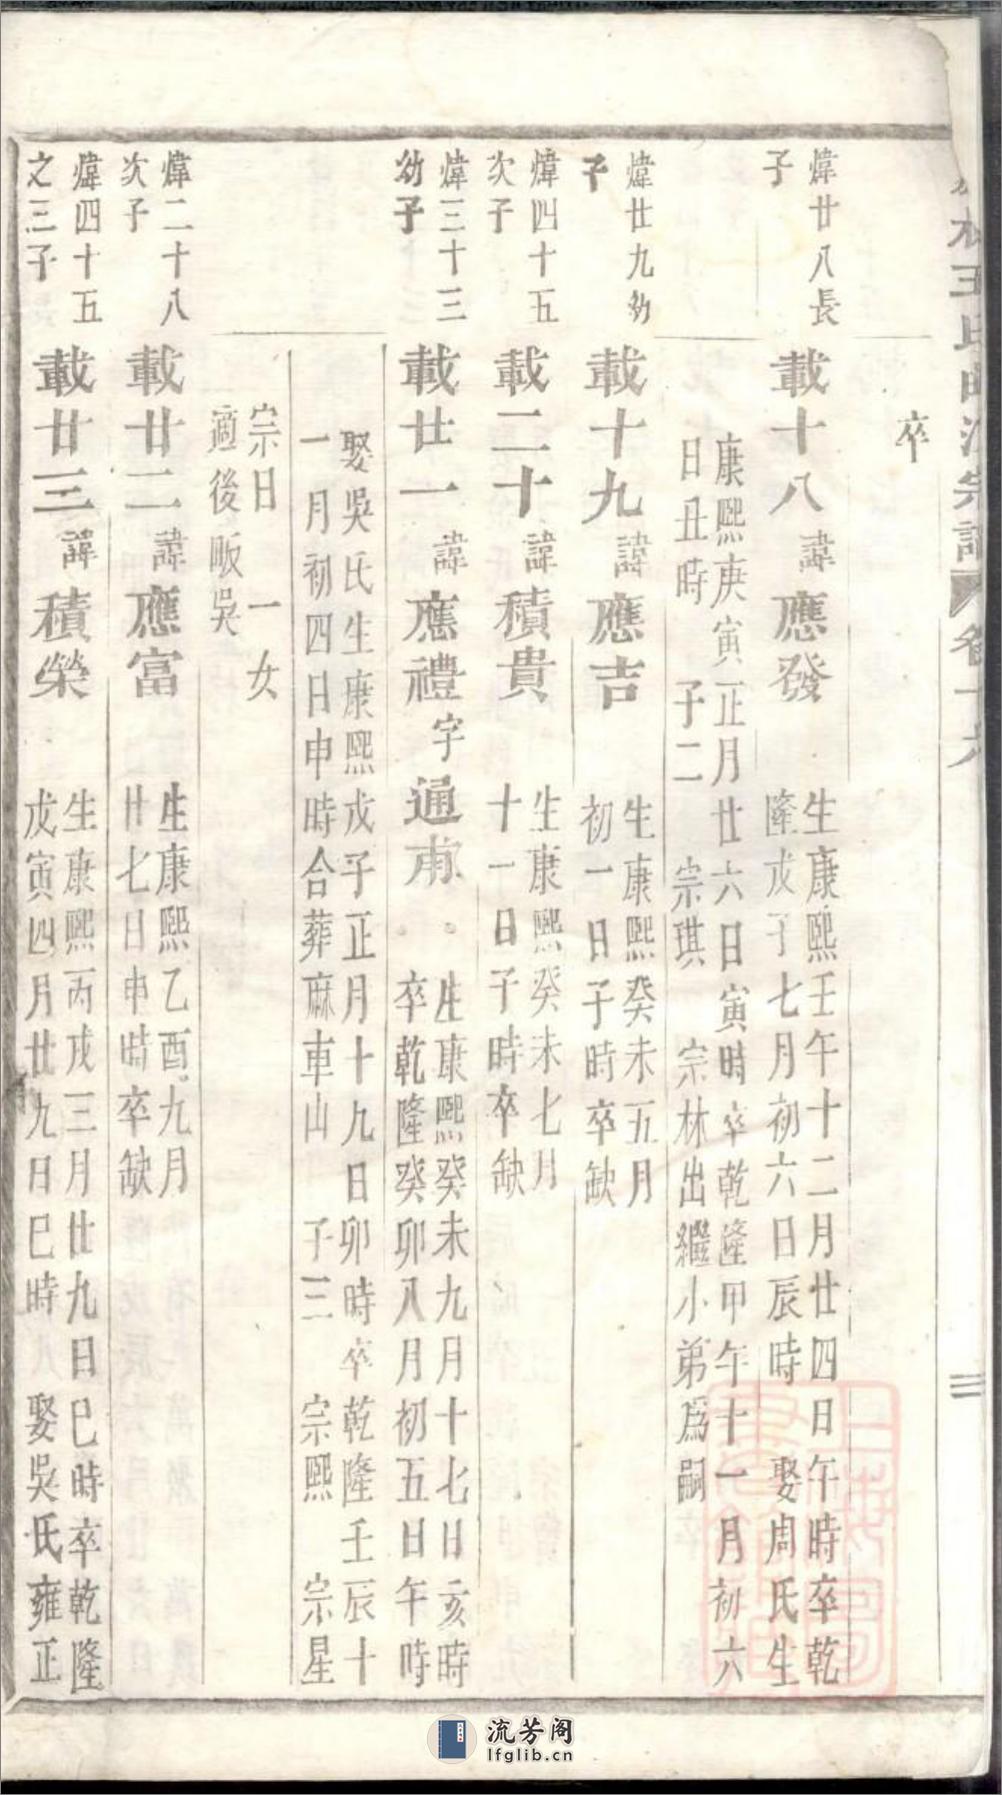 王氏曲江宗譜 卷十六
三
卒
煒廿八長
子
載十八諱應發
生康熙壬午十二月廿四日午時卒乾
隆戊子七月初六日辰時 娶周氏生
康熙庚寅正月廿六日寅時卒乾隆甲午十一月初六
日丑時 子二 宗琪 宗林出繼小弟爲嗣
煒廿九幼
子
載十九諱應吉
生康熙癸未五月
初一日子時卒缺
煒四十五
次子
載二十諱積貴
生康熙癸未七月
十一日子時卒缺
煒三十三
幼子
載廿一諱應禮字通甫
生康熙癸未九月十七日亥時
卒乾隆癸卯八月初五日午時
娶吳氏生康熙戊子正月十九日卯時卒乾隆壬辰十
一月初四日申時合葬麻車山 子三 宗熙 宗星
宗日 一女
適後畈吳
煒二十八
次子
載廿二諱應富
生康熙乙酉九月
廿七日申時卒缺
煒四十五
之三子
載廿三諱積榮
生康熙丙戌三月廿九日巳時卒乾隆
戊寅四月廿九日巳時 娶吳氏雍正
流芳阁
lfglib.cn